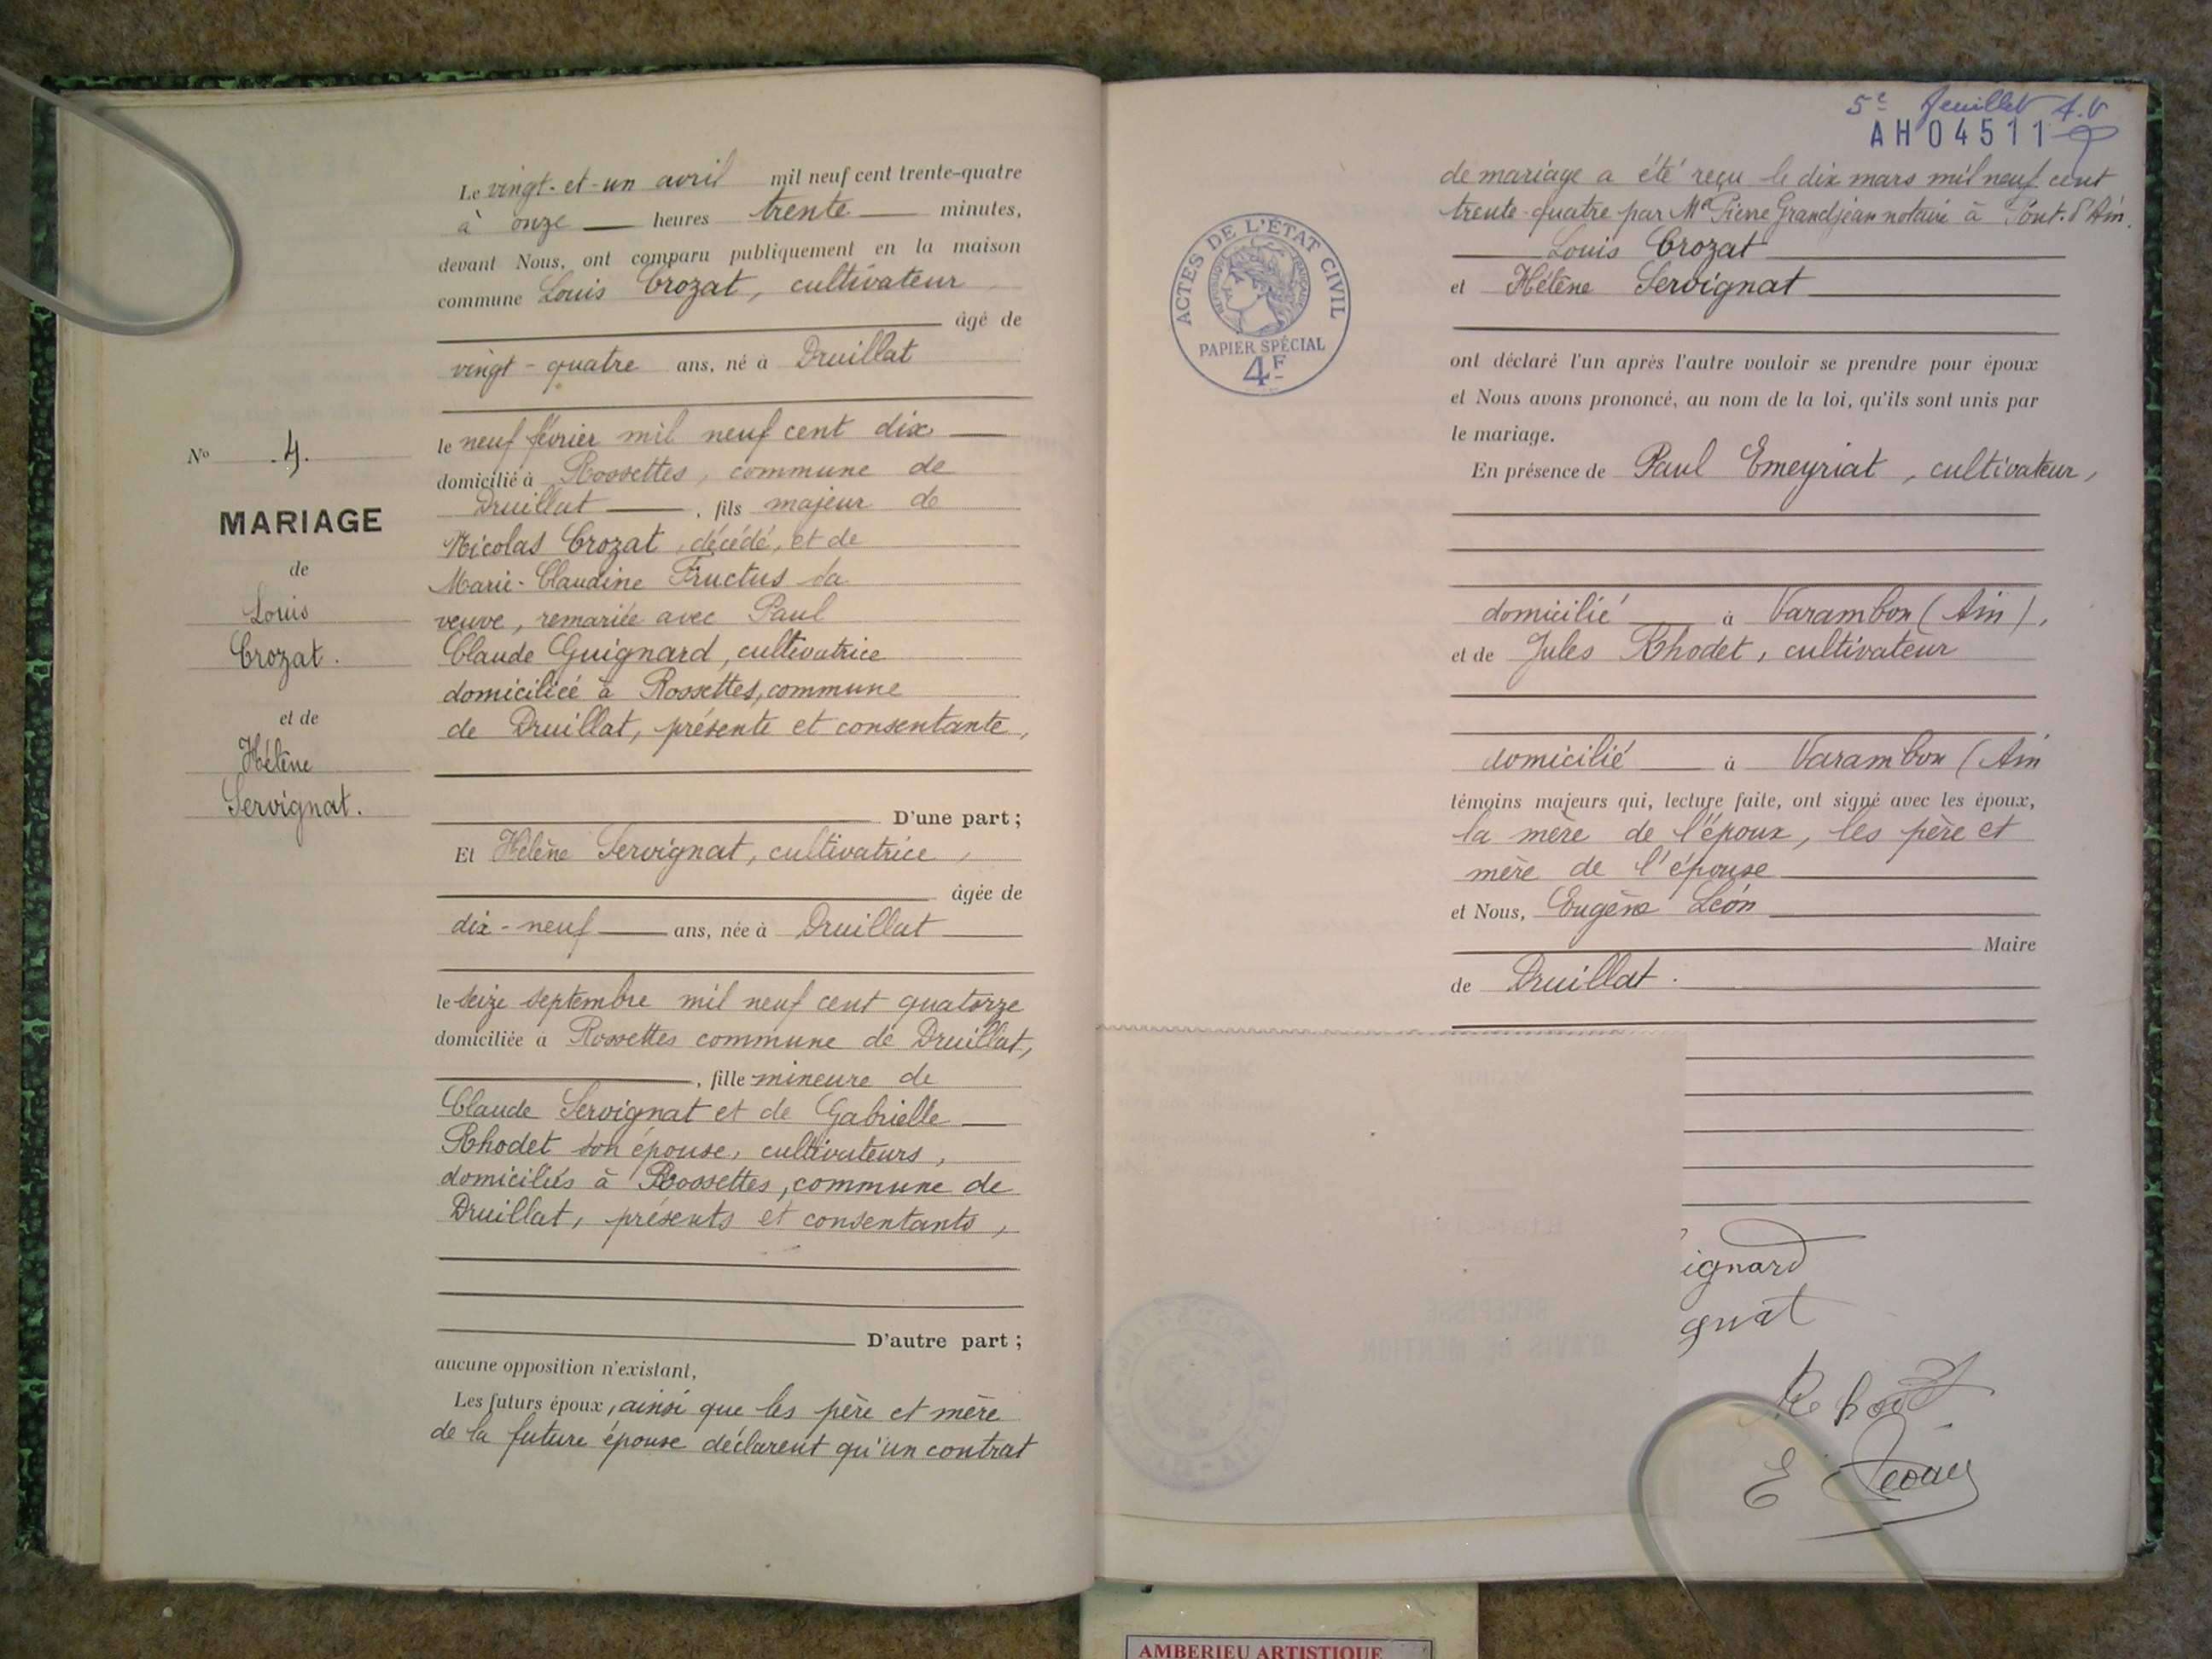 Le vingt-et-un avril mil neuf cent trente-quatre
à onze heures trente minutes,
devant Nous, ont comparu publiquement en la maison
commune Louis Crozat, cultivateur
âgé de
vingt-quatre ans, né à Druillat
le neuf février mil neuf cent dix
domicilié à Rossettes, commune de
Druillat, fils majeur de
Nicolas Crozat, décédé, et de
Marie-Claudine Fructus sa
veuve, remariée avec Paul
Claude Guignard, cultivatrice
domiciliée à Rossettes, commune
de Druillat, présente et consentante,
D'une part;
Et Hélène Servignat, cultivatrice,
âgée de
dix-neuf ans, née à Druillat
le seize septembre mil neuf cent quatorze
domiciliée à Rossettes commune de Druillat,
, fille mineure de
Claude Servignat et de Gabrielle
Rhodet son épouse, cultivateurs,
domiciliés à Rossettes, commune de
Druillat, présents et consentants,
D'autre part;
aucune opposition n'existant,
Les futurs époux, ainsi que les père et mère
de la future épouse déclarent qu'un contrat
No 4.
MARIAGE
de
Louis
Crozat.
et de
Hélène
Servignat.
5e feuillet A.V
AH04511
de mariage a été reçu le dix mars mil neuf cent
trente-quatre par Me Pierre Grandjean notaire à Pont-d'Ain.
Louis Crozat
et Hélène Servignat
ont déclaré l'un après l'autre vouloir se prendre pour époux
et Nous avons prononcé, au nom de la loi, qu'ils sont unis par
le mariage.
En présence de Paul Emeyriat, cultivateur,
domicilié à Varambon (Ain),
et de Jules Rhodet, cultivateur
domicilié à Varambon (Ain
témoins majeurs qui, lecture faite, ont signé avec les époux,
la mère de l'époux, les père et
mère de l'épouse
et Nous, Eugène Léon
Maire
de Druillat.
ignard
gnat
Rhodet
E Léon
ACTES DE L'ÉTAT CIVIL
RÉPUBLIQUE FRANÇAISE
PAPIER SPÉCIAL
4F
RÉCÉPISSÉ
D'AVIS DE MENTION
AMBERIEU ARTISTIQUE